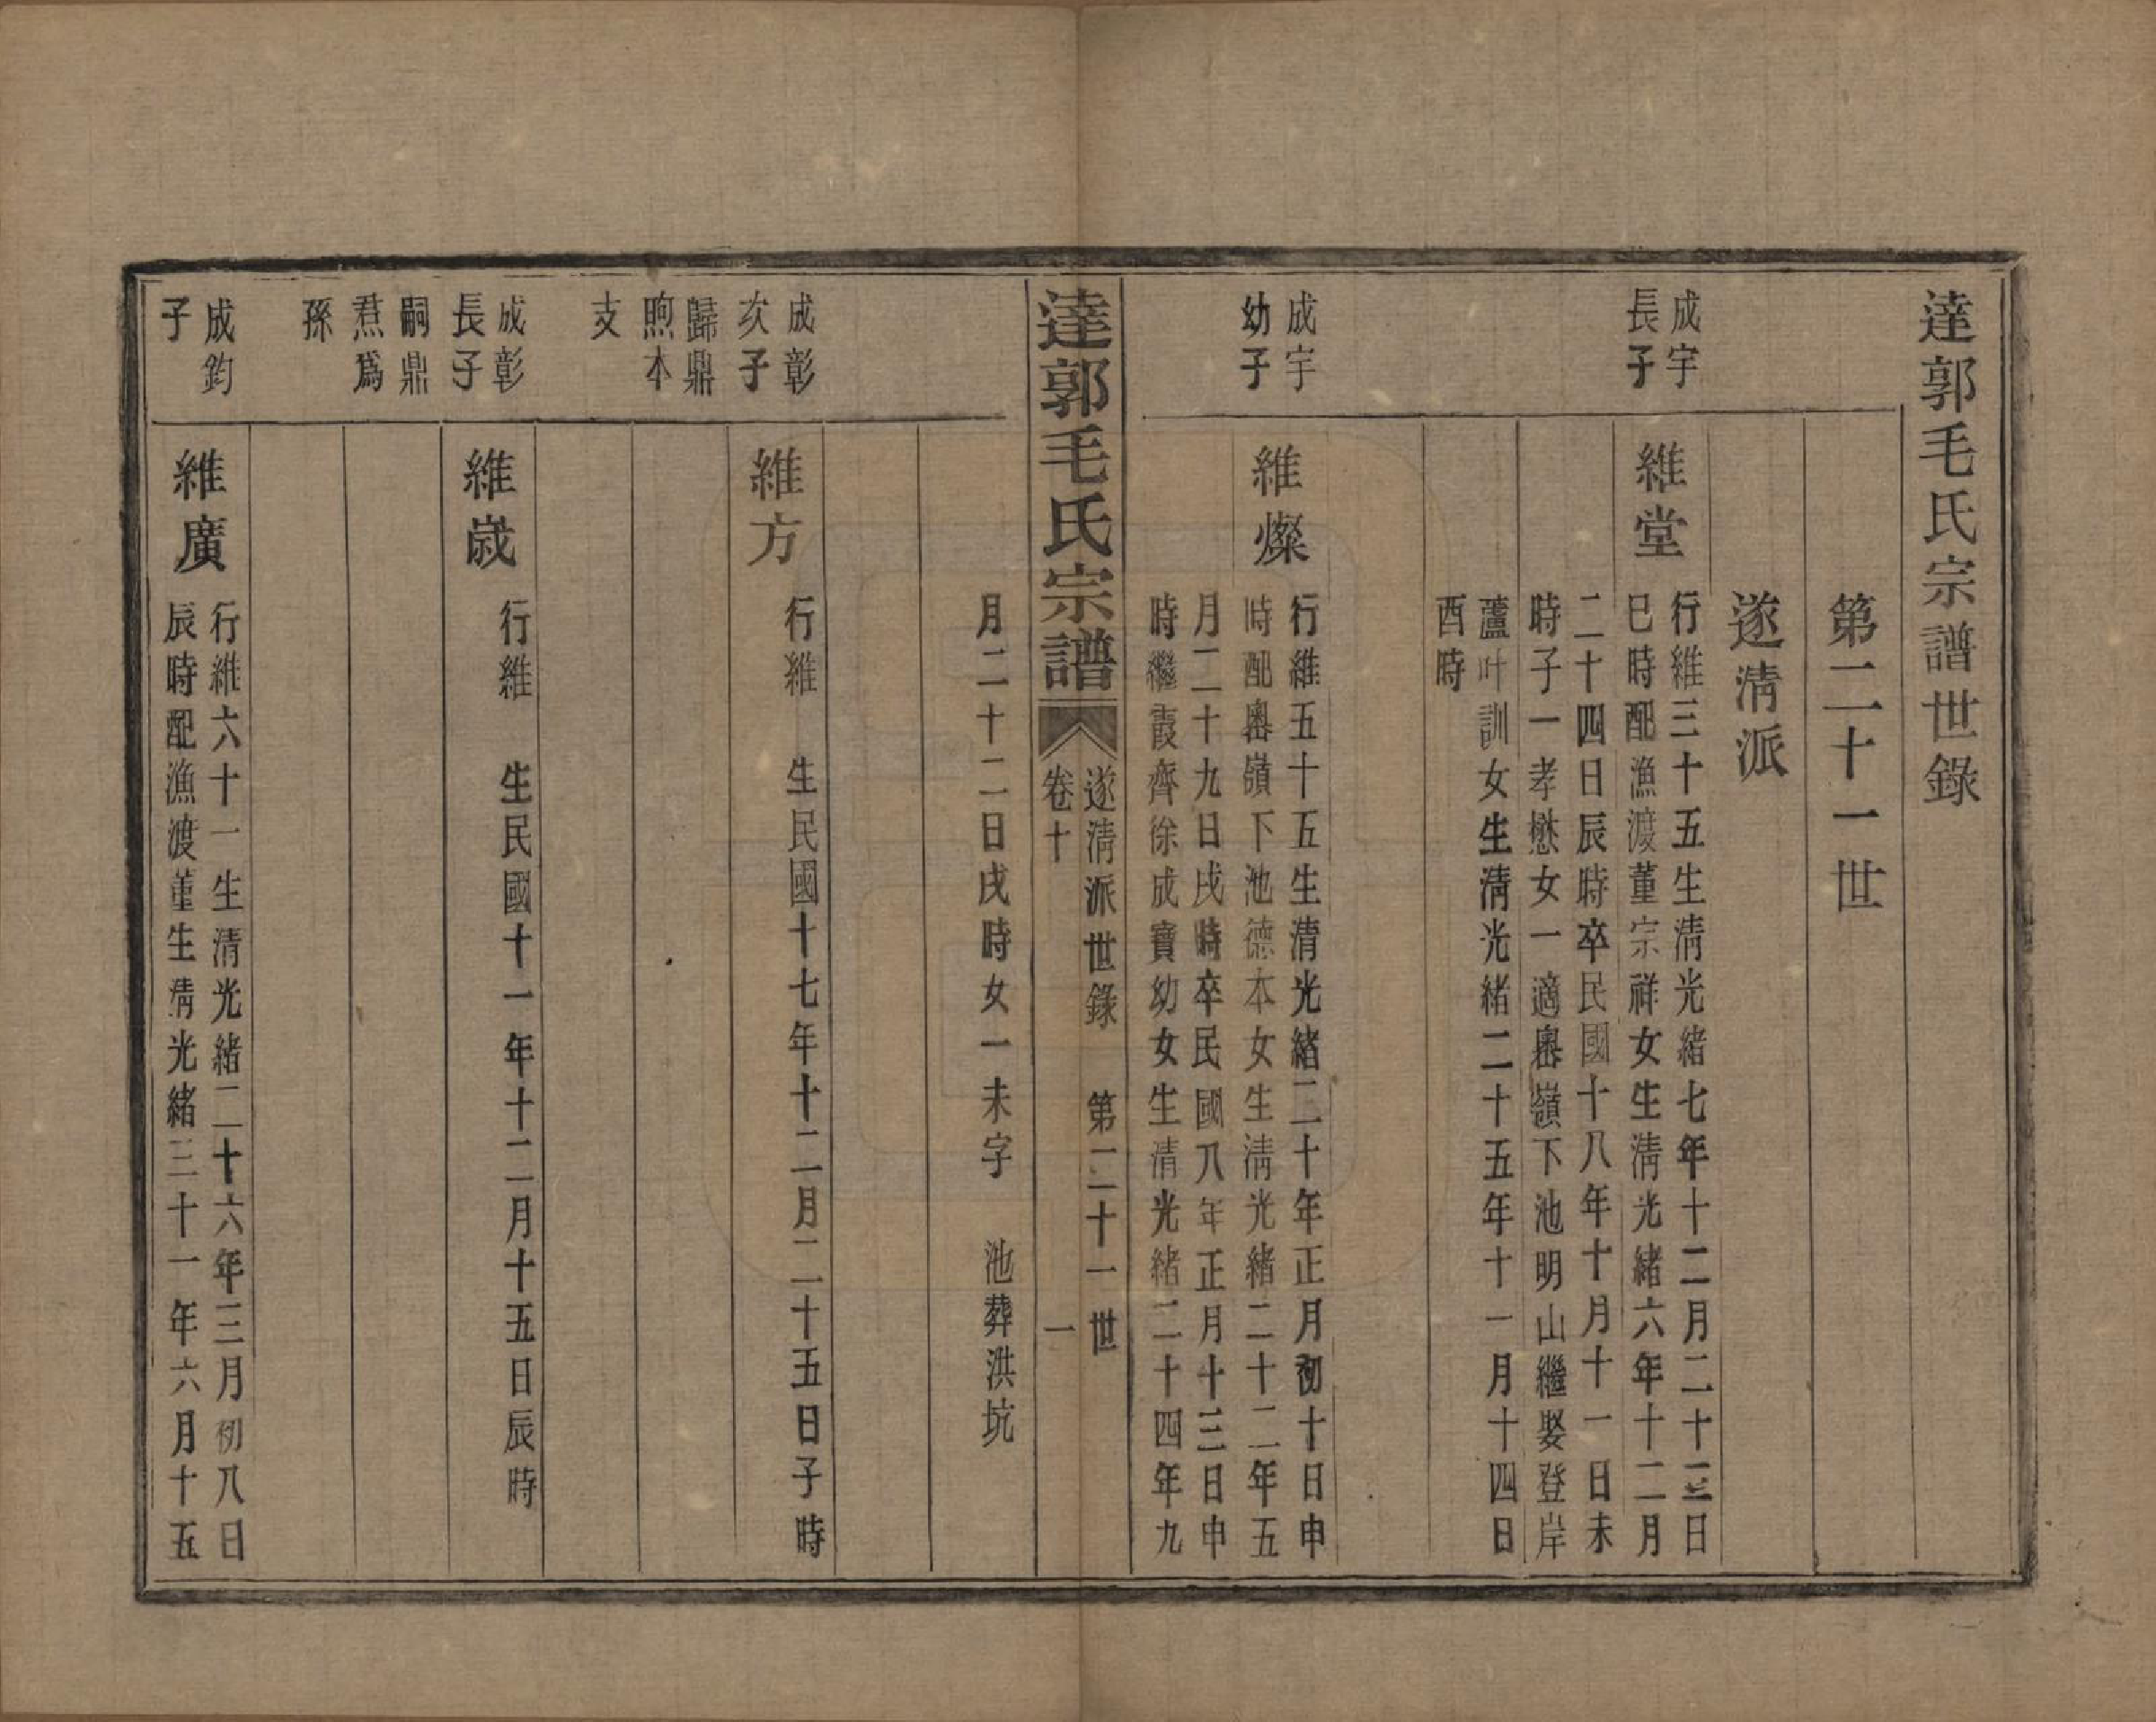 達郭毛氏宗譜世錄
第二十一世
遂淸派
成宇
長子
維堂
行維三十五生淸光緒七年十二月二十三日
巳時配漁渡董宗祥女生淸光緒六年十二月
二十四日辰時卒民國十八年十月十一日未
時子一孝懋女一適嶴嶺下池明山繼娶登岸
蘆叶訓女生淸光緒二十五年十一月十四日
酉時
成宇
幼子
維燦
行維五十五生淸光緒二十年正月初十日申
時配嶴嶺下池德本女生淸光緒二十二年五
月二十九日戌時卒民國八年正月十三日申
時繼霞齊徐成寶幼女生淸光緒二十四年九
達郭毛氏宗譜
遂淸派世錄　第二十一世
卷十　一
月二十二日戌時女一未字　池葬洪坑
成彰
次子
歸鼎
煦本
支
維方
行維　生民國十七年十二月二十五日子時
成彰
長子
嗣鼎
焄爲
孫
維歲
行維　生民國十一年十二月十五日辰時
成鈞
子
維廣
行維六十一生清光緒二十六年三月初八日
辰時配漁渡董生淸光緒三十一年六月十五